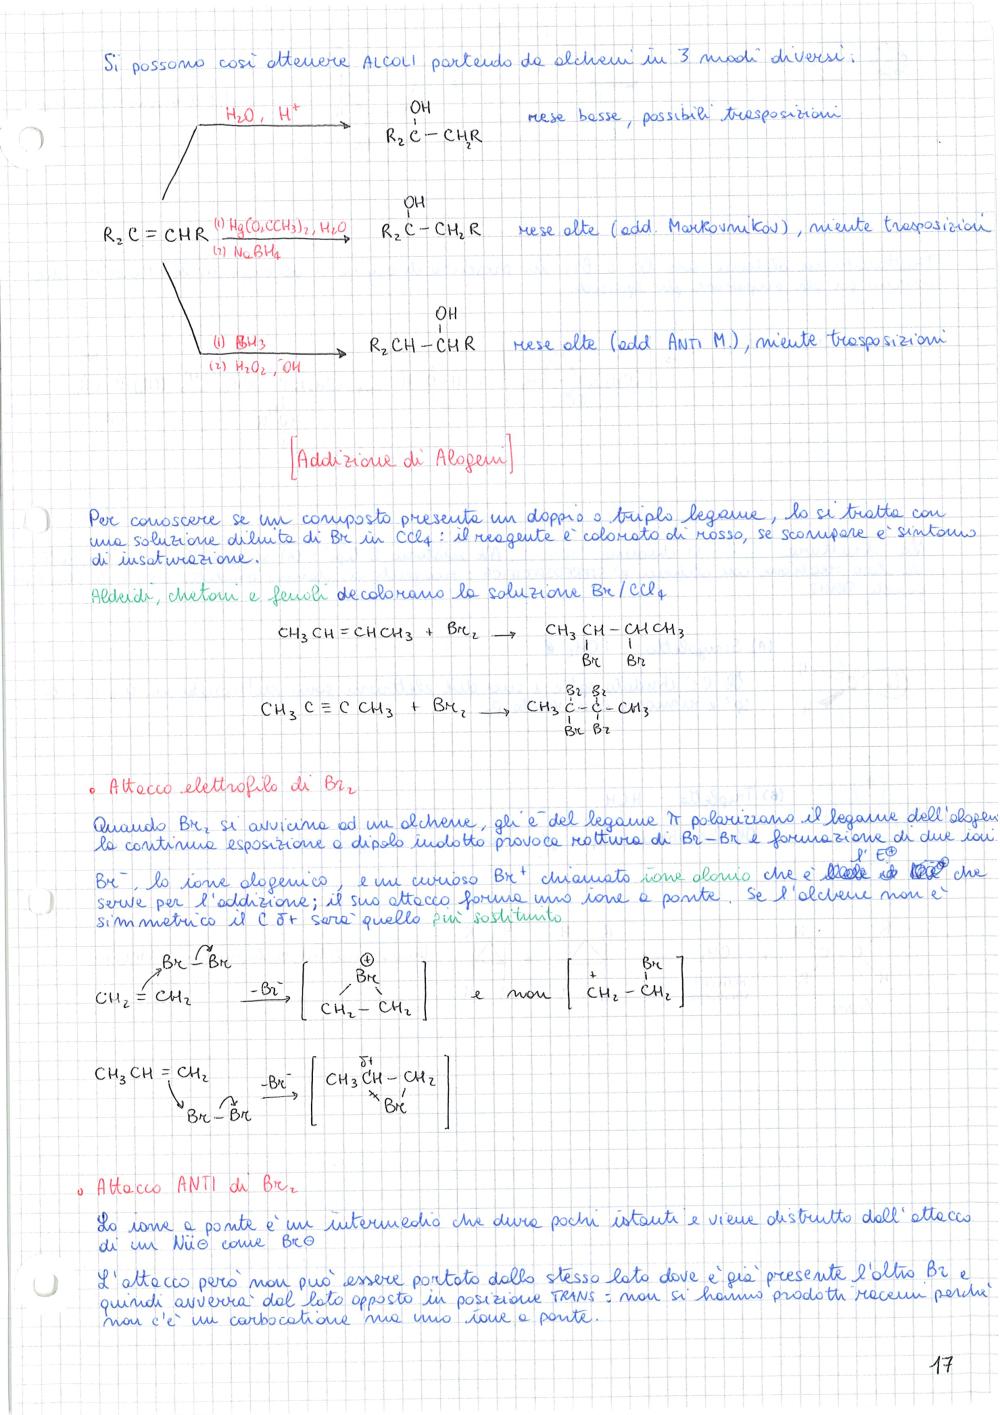 Si possono così ottenere ALCOLI partendo da alcheni in 3 modi diversi:
H2O, H+
OH
R2C-CH2R
rese basse, possibili trasposizioni
R2C=CHR
(1) Hg(O2CCH3)2, H2O
(2) NaBH4
OH
R2C-CH2R
rese alte (add. Markovnikov), niente trasposizioni
(1) BH3
(2) H2O2, -OH
OH
R2CH-CHR
rese alte (add ANTI M.), niente trasposizioni
[Addizione di Alogeni]
Per conoscere se un composto presenta un doppio o triplo legame, lo si tratta con
una soluzione diluita di Br in CCl4: il reagente è colorato di rosso, se scompare è sintomo
di insaturazione.
Aldeidi, chetoni e fenoli decolorano la soluzione Br/CCl4
CH3CH=CHCH3 + Br2 → CH3CH-CHCH3
Br Br
Br Br
CH3C≡CCH3 + Br2 → CH3C-C-CH3
Br Br
• Attacco elettrofilo di Br2
Quando Br2 si avvicina ad un alchene, gli e- del legame π polarizzano il legame dell'alogeno
la continua esposizione a dipolo indotto provoca rottura di Br-Br e formazione di due ioni
Br-, lo ione alogenico, e un curioso Br+ chiamato ione alonio che è l'E⊕ che
serve per l'addizione; il suo attacco forma uno ione a ponte. Se l'alchene non è
simmetrico il C δ+ sarà quello più sostituito
Br-Br
CH2=CH2
-Br-
→
[
⊕
Br
CH2-CH2
]
e non
[
Br
+
CH2-CH2
]
CH3CH=CH2
Br-Br
-Br-
→
[
δ+
CH3CH-CH2
Br
]
• Attacco ANTI di Br2
Lo ione a ponte è un intermedio che dura pochi istanti e viene distrutto dall'attacco
di un Nü⊖ come Br⊖
L'attacco però non può essere portato dallo stesso lato dove è già presente l'altro Br e
quindi avverrà dal lato opposto in posizione TRANS: non si hanno prodotti racemi perché
non c'è un carbocatione ma uno ione a ponte.
17